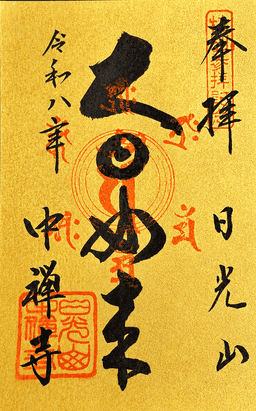 奉拝 日光山
大日如来
令和八年 中禅寺